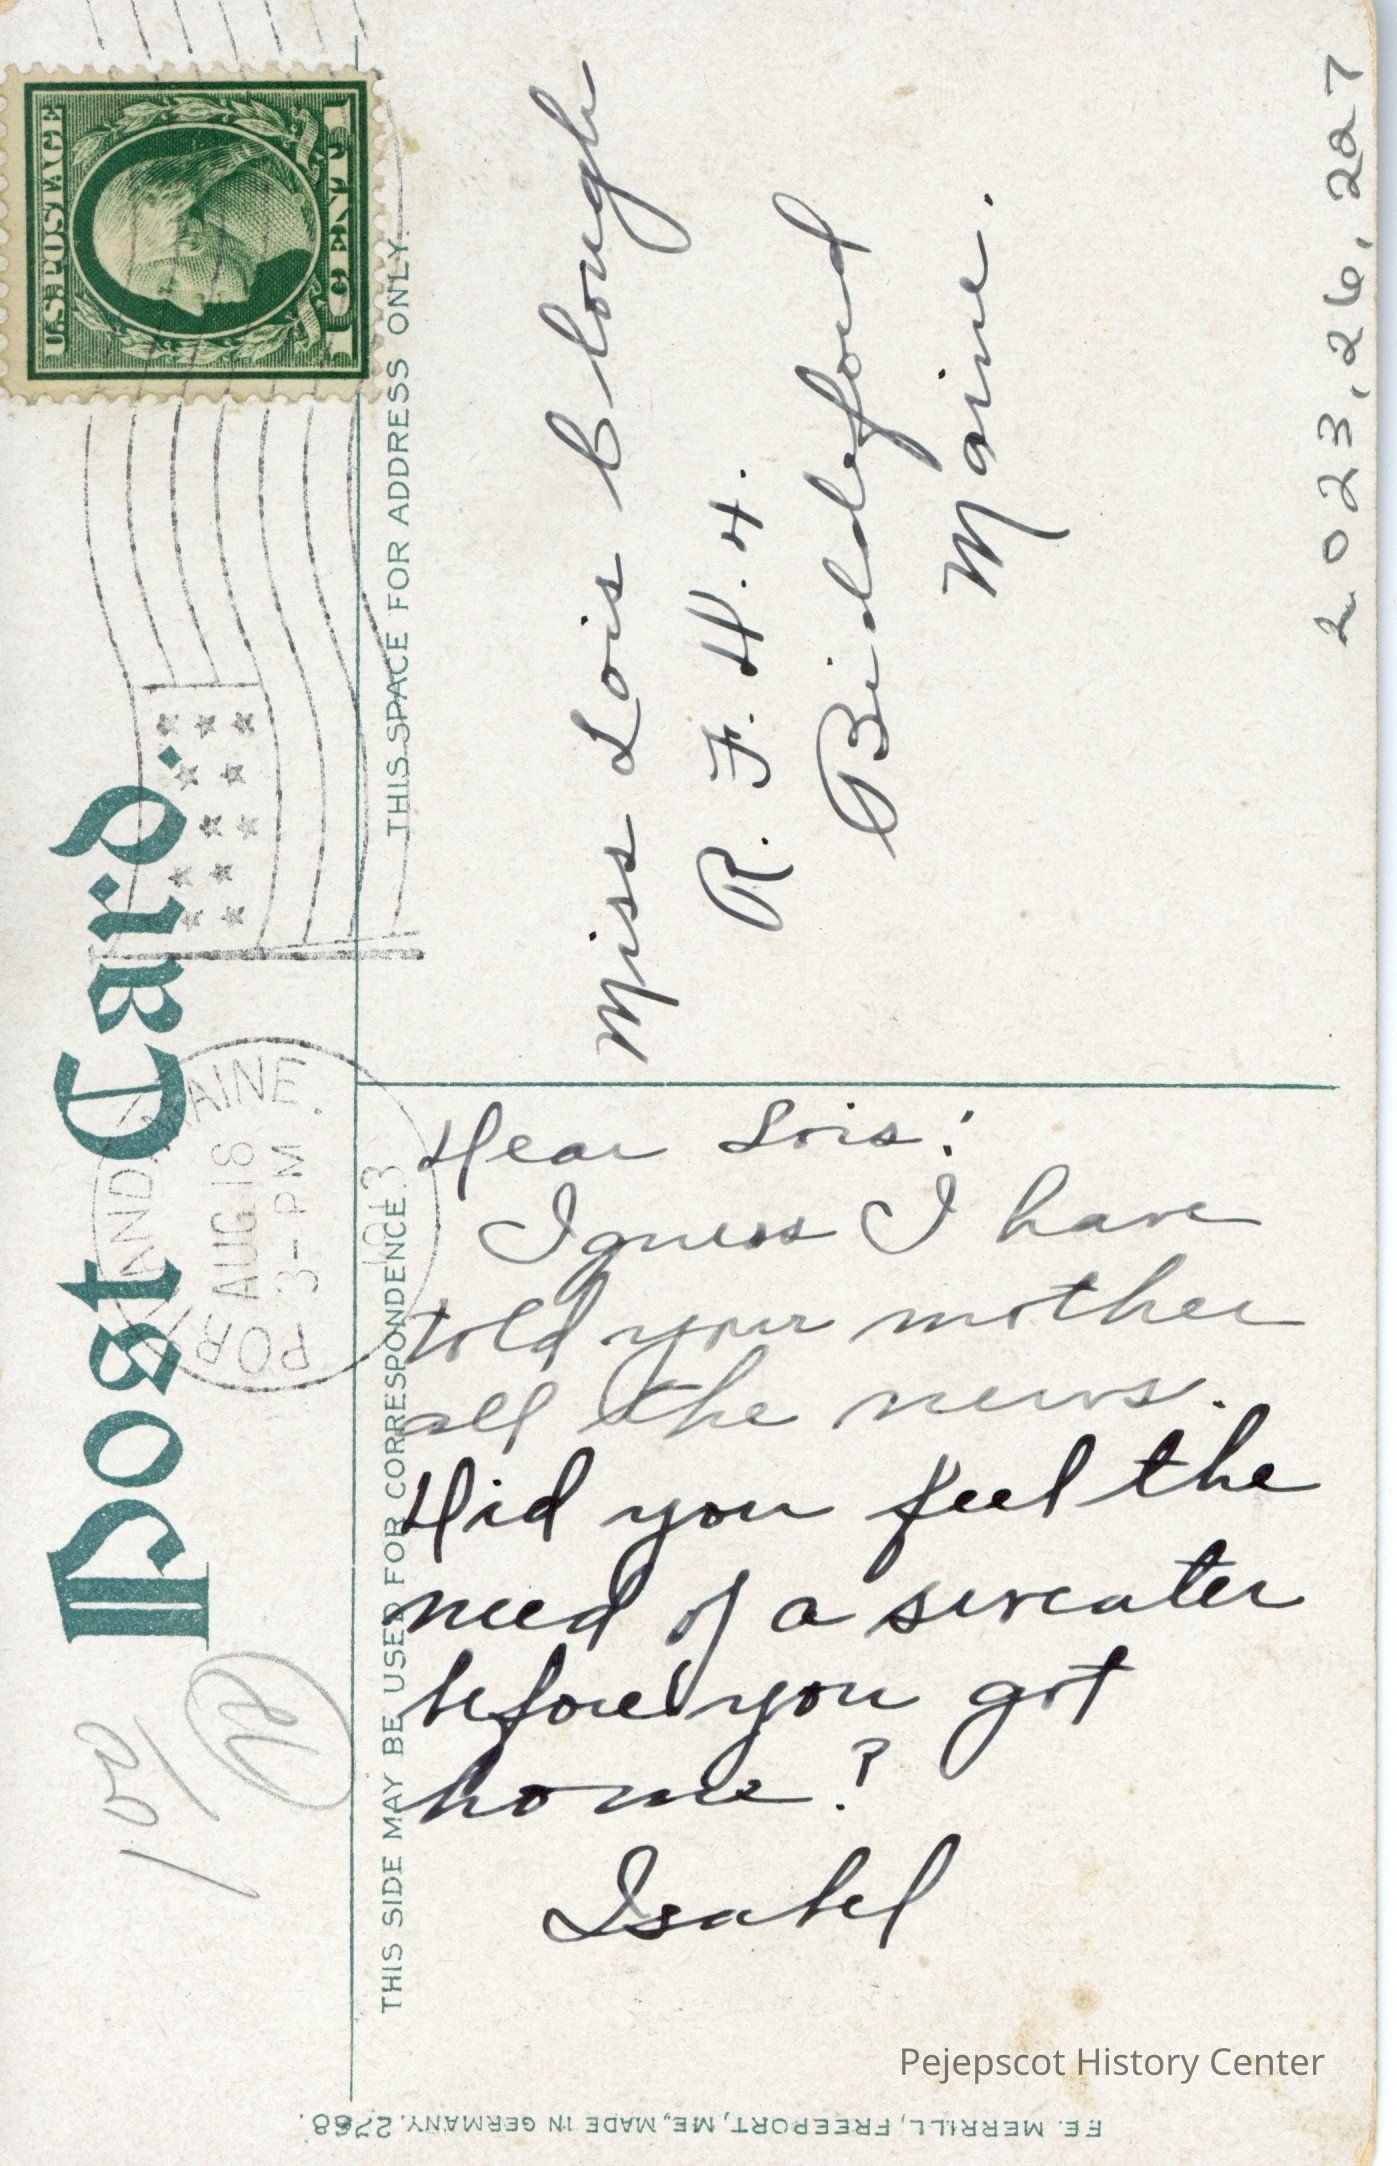 Post Card.
U.S. POSTAGE
1 CENT 1
PORTLAND, MAINE.
AUG 18
3 - PM
1913
THIS SPACE FOR ADDRESS ONLY.
Miss Lois Clough
R. F. D. 4.
Biddeford
Maine.
2023.26.227
THIS SIDE MAY BE USED FOR CORRESPONDENCE.
Dear Lois:
I guess I have
told your mother
all the news.
Did you feel the
need of a sweater
before you got
home?
Isabel
F.E. MERRILL, FREEPORT, ME, MADE IN GERMANY. 2768.
Pejepscot History Center